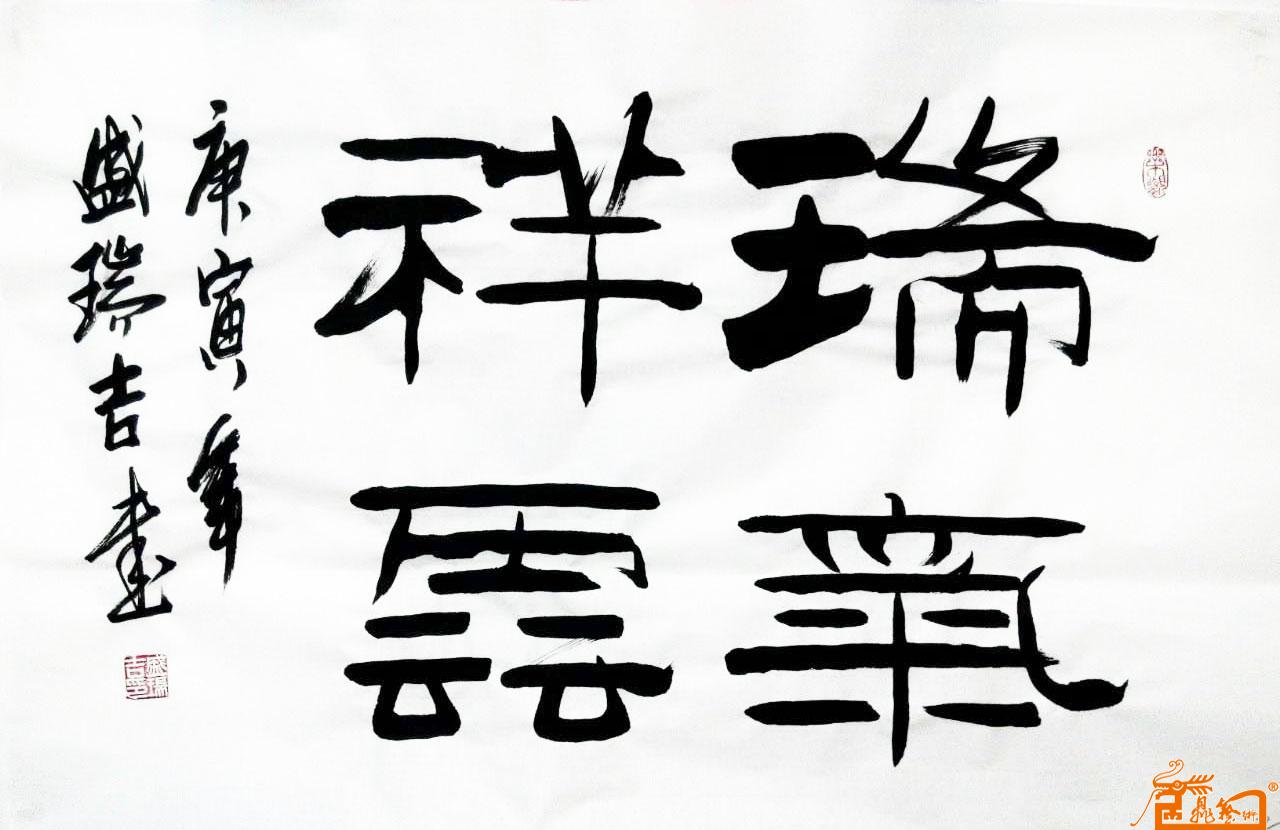 瑞氣
祥雲
庚寅年
盛瑞吉書
盛瑞吉印